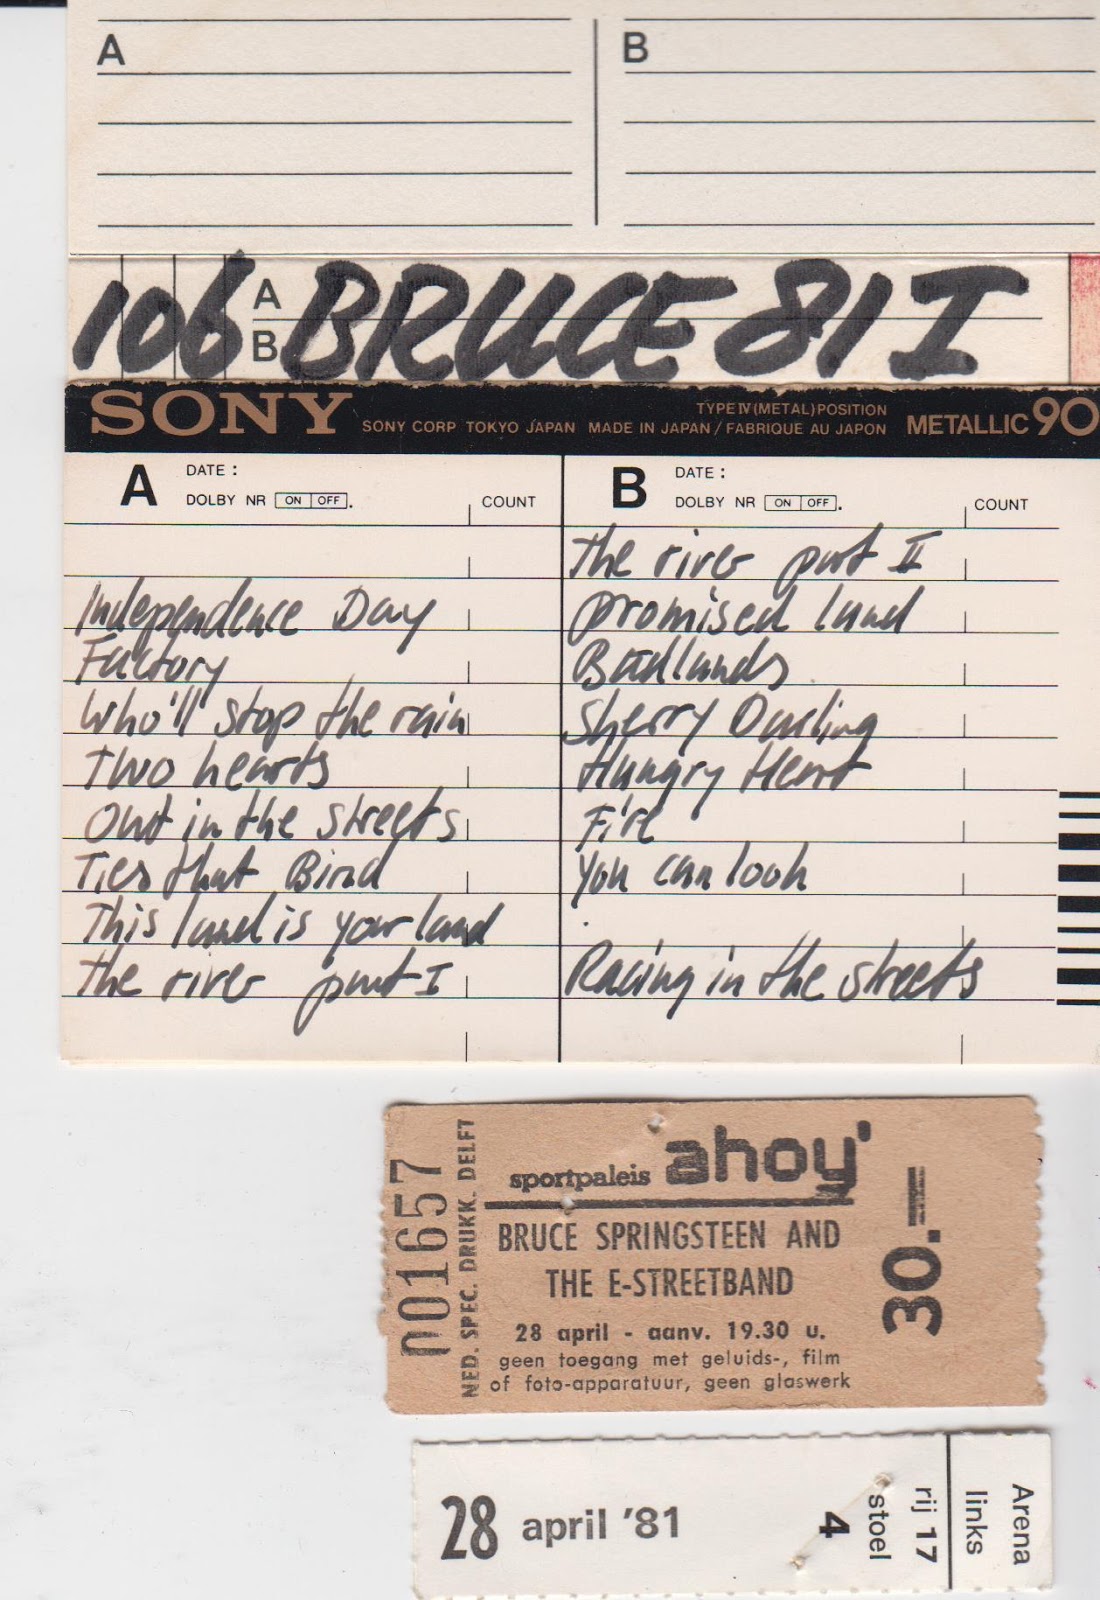 A
B
106 A B BRUCE 81 I
SONY SONY CORP TOKYO JAPAN MADE IN JAPAN / FABRIQUE AU JAPON TYPE IV (METAL) POSITION METALLIC 90
A DATE :
DOLBY NR ON OFF . COUNT
Independence Day
Factory
Who'll stop the rain
Two hearts
Out in the streets
Ties that Bind
This land is your land
The river part I
B DATE :
DOLBY NR ON OFF . COUNT
The river part II
promised land
Badlands
Sherry Darling
Hungry Heart
Fire
You can look
Racing in the streets
n01657
NED. SPEC. DRUKK. DELFT
sportpaleis ahoy'
BRUCE SPRINGSTEEN AND
THE E-STREETBAND
28 april - aanv. 19.30 u.
geen toegang met geluids-, film
of foto-apparatuur, geen glaswerk
30.—
28 april '81
stoel 4
rij 17
Arena
links